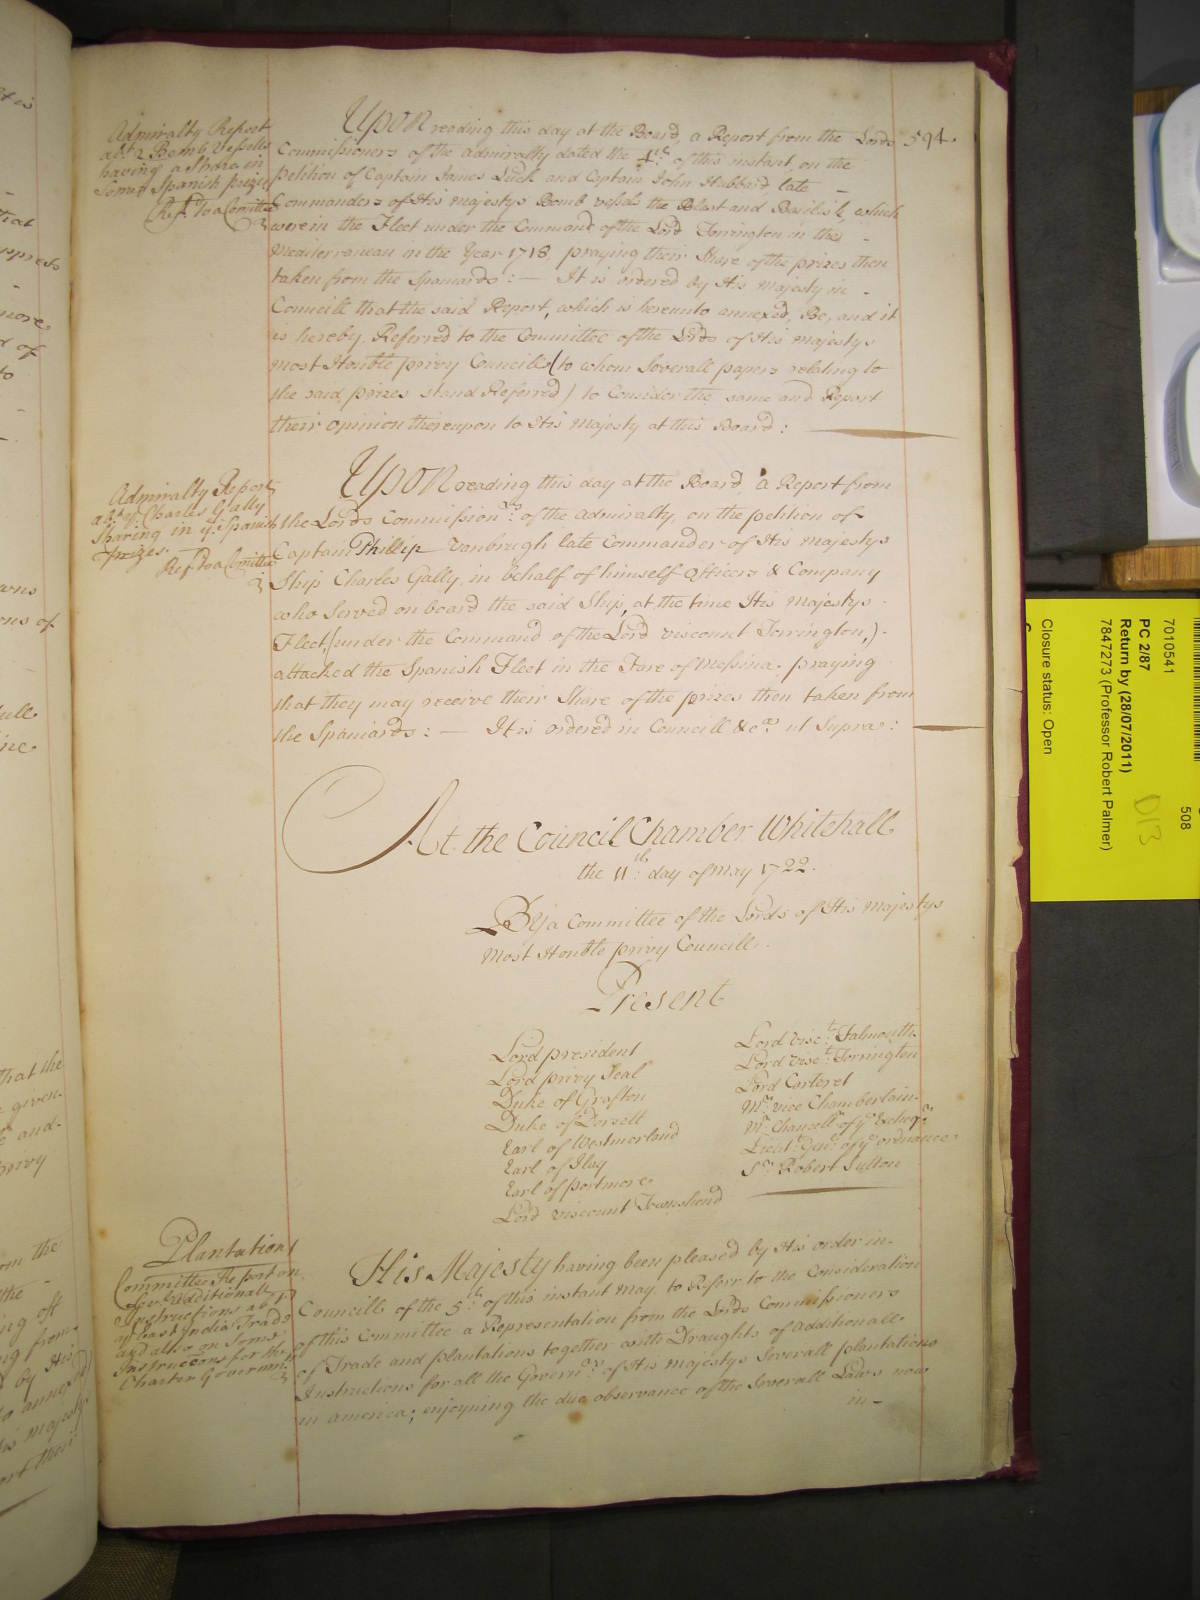 594.
Admiralty Report
abt. 2 Bomb Vessells
having a share in
some Spanish prizes
Refd. to a Comittee
Upon reading this day at the Board, a Report from the Lords
Commissioners of the Admiralty dated the 4th of this instant, on the
petition of Captain James Luck and Captain John Hubbard, late
Commanders of His Majestys Bomb vessls the Blast and Basilisk, which
were in the Fleet under the Command of the Lord Torrington in the
Mediterranean in the Year 1718. praying their Share of the prizes then
taken from the Spaniards: — It is ordered by His Majesty in
Councill that the said Report, which is hereunto annexed, Be, and it
is hereby Referred to the Committee of the Lords of His Majestys
most Honble privy Councill (to whom Severall papers relating to
the said prizes stand Referred) to Consider the same and Report
their opinion thereupon to His Majesty at this Board:
Admiralty Report
abt. ye. Charles Gally
Sharing in ye. Spanish
prizes.
Refd. to a Comittee
Upon reading this day at the Board, a Report from
the Lords Commissionrs. of the Admiralty, on the petition of
Captain Phillip Vanbrugh late Commander of His Majestys
Ship Charles Gally, in behalf of himself Officers & Company
who Served on board the said Ship, at the time His Majestys
Fleet, (under the Command of the Lord viscount Torrington,)
attacked the Spanish Fleet in the Fare of Messina. praying
that they may receive their Share of the prizes then taken from
the Spaniards: — It is ordered in Councill &ca. ut Supra:
At the Council Chamber Whitehall
the 11th: day of May 1722.
By a Committee of the Lords of His Majestys
Most Honble privy Councill.
Present
Lord president
Lord privy Seal
Duke of Grafton
Duke of Dorsett
Earl of Westmorland
Earl of Ilay
Earl of portmore
Lord viscount Townshend
Lord Visct. Falmouth
Lord Visct. Torrington
Lord Carteret
Mr. vice Chamberlain
Mr. Chancellr. of ye. Excheqr.
Lieutt. Genl. of ye. ordnance
Sr. Robert Sutton
Plantations
Committee Report on
Additionall
Instructions abt.
East India Trade
and also on Some
Instruccons for the
Charter Governmts.
His Majesty having been pleased by His order in
Councill of the 5th. of this instant May, to Referr to the Consideration
of this Committee a Representation from the Lords Commissioners
of Trade and plantations together with Draughts of Additionall
Instructions for all the Governrs. of His Majestys Severall plantations
in America; enjoyning the due observance of the Severall Laws now
in
7010541
508
PC 2/87
Return by (28/07/2011)
7847273 (Professor Robert Palmer)
D13
Closure status: Open